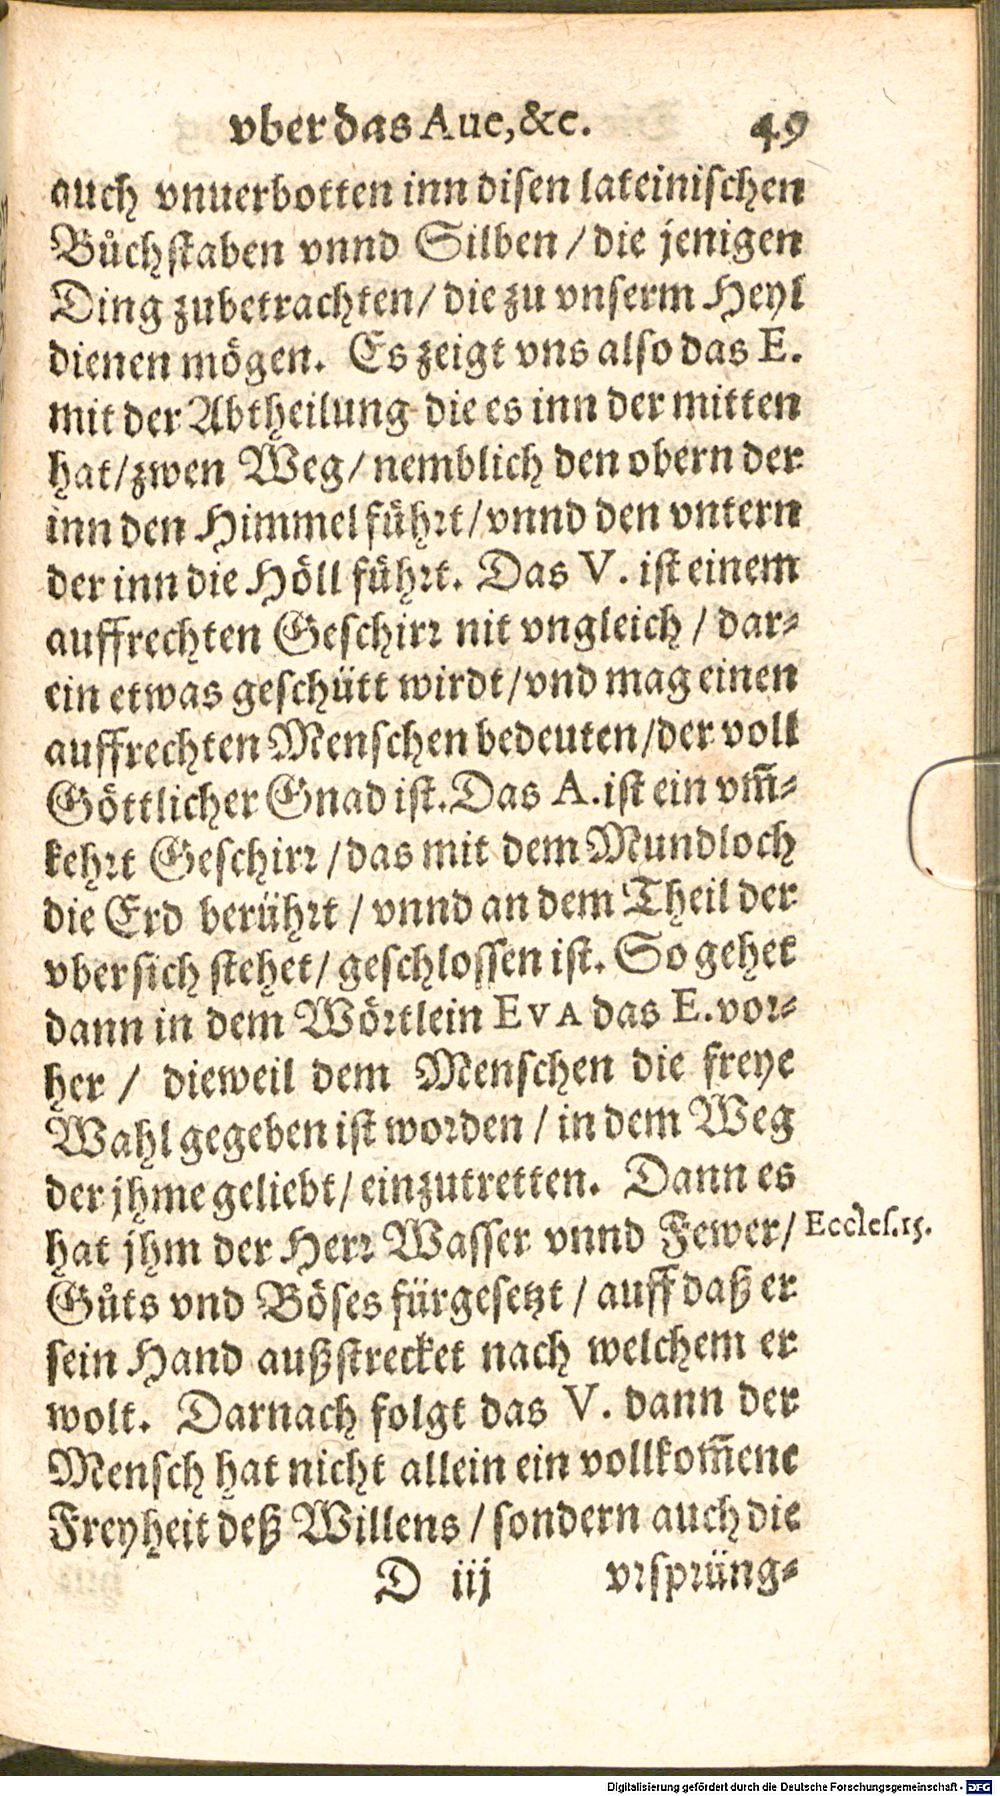 vber das Aue, &c. 49
auch vnuerbotten inn disen lateinischen
Bůchstaben vnnd Silben / die jenigen
Ding zubetrachten / die zu vnserm Heyl
dienen mögen. Es zeigt vns also das E.
mit der Abtheilung die es inn der mitten
hat / zwen Weg / nemblich den obern der
inn den Himmel führt / vnnd den vntern
der inn die Höll führt. Das V. ist einem
auffrechten Geschirr nit vngleich / dar-
ein etwas geschütt wirdt / vnd mag einen
auffrechten Menschen bedeuten / der voll
Göttlicher Gnad ist. Das A. ist ein vm̃-
kehrt Geschirr / das mit dem Mundloch
die Erd berührt / vnnd an dem Theil der
vbersich stehet / geschlossen ist. So gehet
dann in dem Wörtlein EVA das E. vor-
her / dieweil dem Menschen die freye
Wahl gegeben ist worden / in dem Weg
der jhme geliebt / einzutretten. Dann es
hat jhm der Herr Wasser vnnd Fewer / Eccles. 15.
Gůts vnd Böses fürgesetzt / auff daß er
sein Hand außstrecket nach welchem er
wolt. Darnach folgt das V. dann der
Mensch hat nicht allein ein vollkom̃ene
Freyheit deß Willens / sondern auch die
D iij vrsprüng-
Digitalisierung gefördert durch die Deutsche Forschungsgemeinschaft - DFG